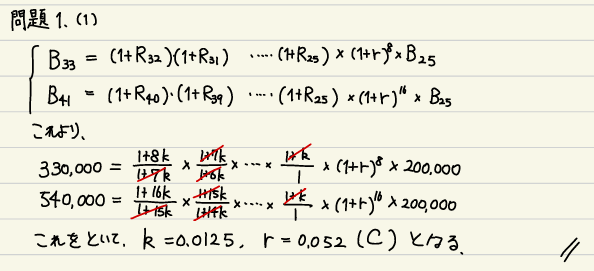 問題1.(1)
B₃₃ = (1+R₃₂)(1+R₃₁) ‥‥(1+R₂₅) × (1+r)⁸ × B₂₅
B₄₁ = (1+R₄₀)·(1+R₃₉) ‥‥(1+R₂₅) × (1+r)¹⁶ × B₂₅
これより、
330,000 = (1+8k)/(1+7k) × (1+7k)/(1+6k) × ‥‥ × (1+k)/1 × (1+r)⁸ × 200,000
540,000 = (1+16k)/(1+15k) × (1+15k)/(1+14k) × ‥‥ × (1+k)/1 × (1+r)¹⁶ × 200,000
これをといて、k = 0.0125, r = 0.052 (C) となる。 //